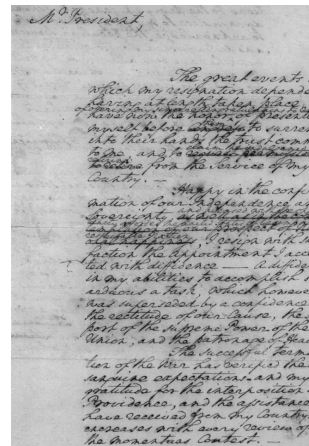 Mr. President,
The great events
which my resignation depende
having at length taken place
have now the honor of
myself before to surre
into their hands the trust comm
to me, and to
from the service of my
Country. —
Happy in the confir
mation of our Independence a
Sovereignty,
I resign with sa
faction the Appointment I acc
ted with diffidence — a diffid
in my abilities to accomplish
arduous a task, which howeve
was superseded by a confidence
the rectitude of our Cause, the
port of the supreme Power of the
Union, and the patronage of Hea
The successful termi
tion of the War has verified the
sanguine expectations, and my
gratitude for the interposition
Providence, and the assistance
have received from my Country
encreases with every review of
the momentous Contest. —